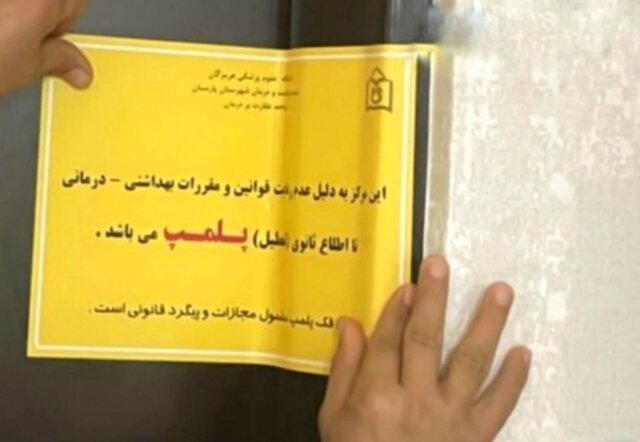 علوم پزشکی هرمزگان
و درمان شهرستان پارسیان
نظارت بر درمان
این مرکز به دلیل عدم قوانین و مقررات بهداشتی - درمانی
تا اطلاع ثانوی (تعطیل) پلمپ می باشد .
فک پلمپ مشمول مجازات و پیگرد قانونی است .